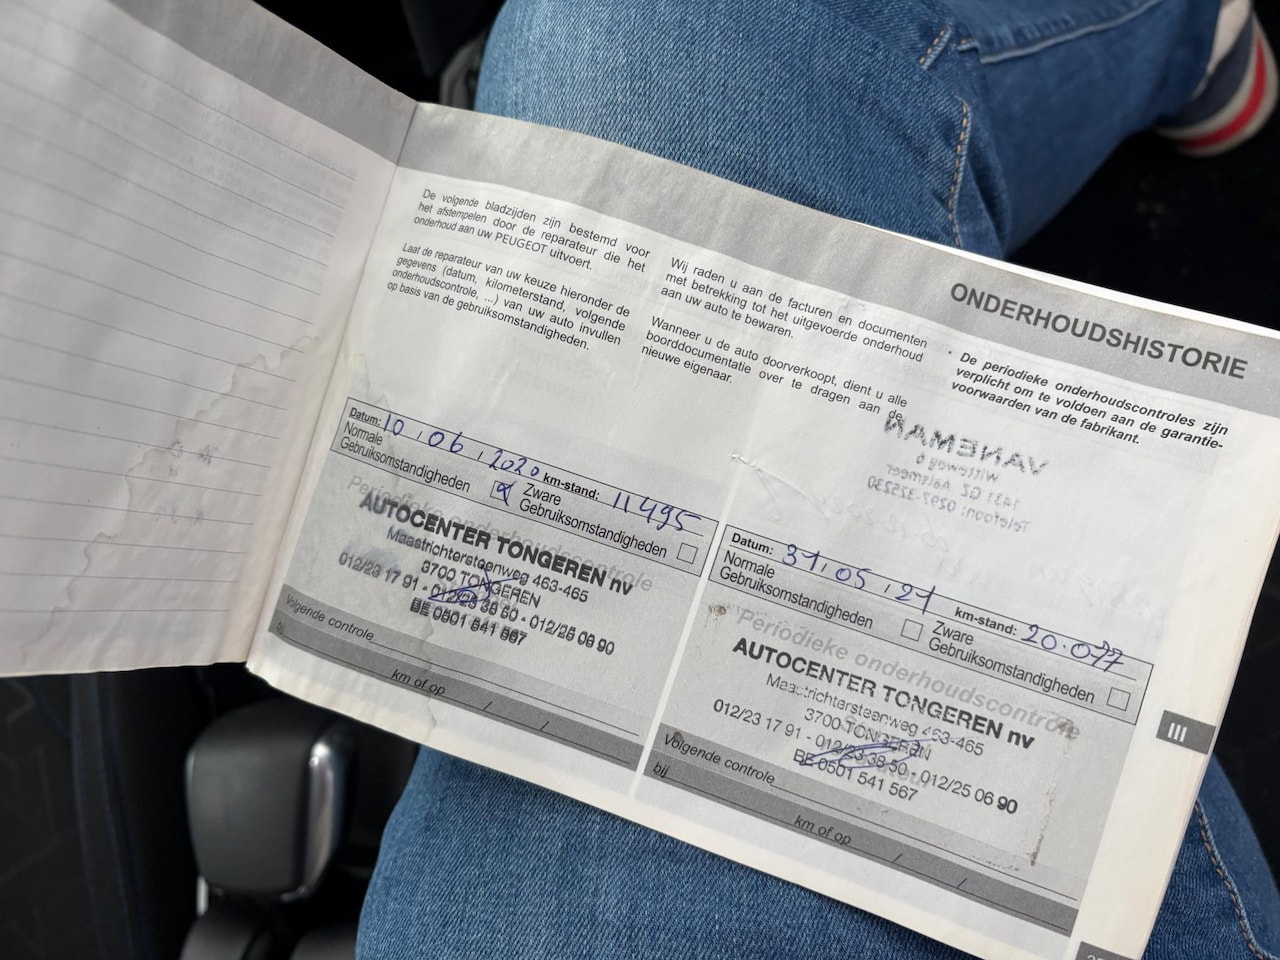 ONDERHOUDSHISTORIE
De volgende bladzijden zijn bestemd voor
het afstempelen door de reparateur die het
onderhoud aan uw PEUGEOT uitvoert.
Laat de reparateur van uw keuze hieronder de
gegevens (datum, kilometerstand, volgende
onderhoudscontrole, ...) van uw auto invullen
op basis van de gebruiksomstandigheden.
Wij raden u aan de facturen en documenten
met betrekking tot het uitgevoerde onderhoud
aan uw auto te bewaren.
Wanneer u de auto doorverkoopt, dient u alle
boorddocumentatie over te dragen aan de
nieuwe eigenaar.
* De periodieke onderhoudscontroles zijn
verplicht om te voldoen aan de garantie-
voorwaarden van de fabrikant.
VANEMAN
Witteweg 6
1431 GZ Aalsmeer
Telefoon: 0297-325230
Datum: 10, 06, 2020 km-stand: 11495
Normale
Gebruiksomstandigheden
Zware
Gebruiksomstandigheden
Periodieke onderhoudscontrole
AUTOCENTER TONGEREN nv
Maastrichtersteenweg 463-465
3700 TONGEREN
012/23 17 91 - 012/23 38 50 - 012/25 06 90
BE 0501 541 567
Volgende controle
bij
km of op / /
Datum: 31, 05, 21 km-stand: 20.077
Normale
Gebruiksomstandigheden
Zware
Gebruiksomstandigheden
Periodieke onderhoudscontrole
AUTOCENTER TONGEREN nv
Maastrichtersteenweg 463-465
3700 TONGEREN
012/23 17 91 - 012/23 38 50 - 012/25 06 90
BE 0501 541 567
Volgende controle
bij
km of op / /
III